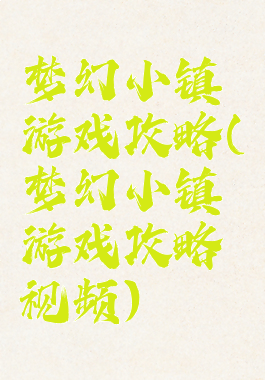 梦幻小镇
游戏攻略(
梦幻小镇
游戏攻略
视频)